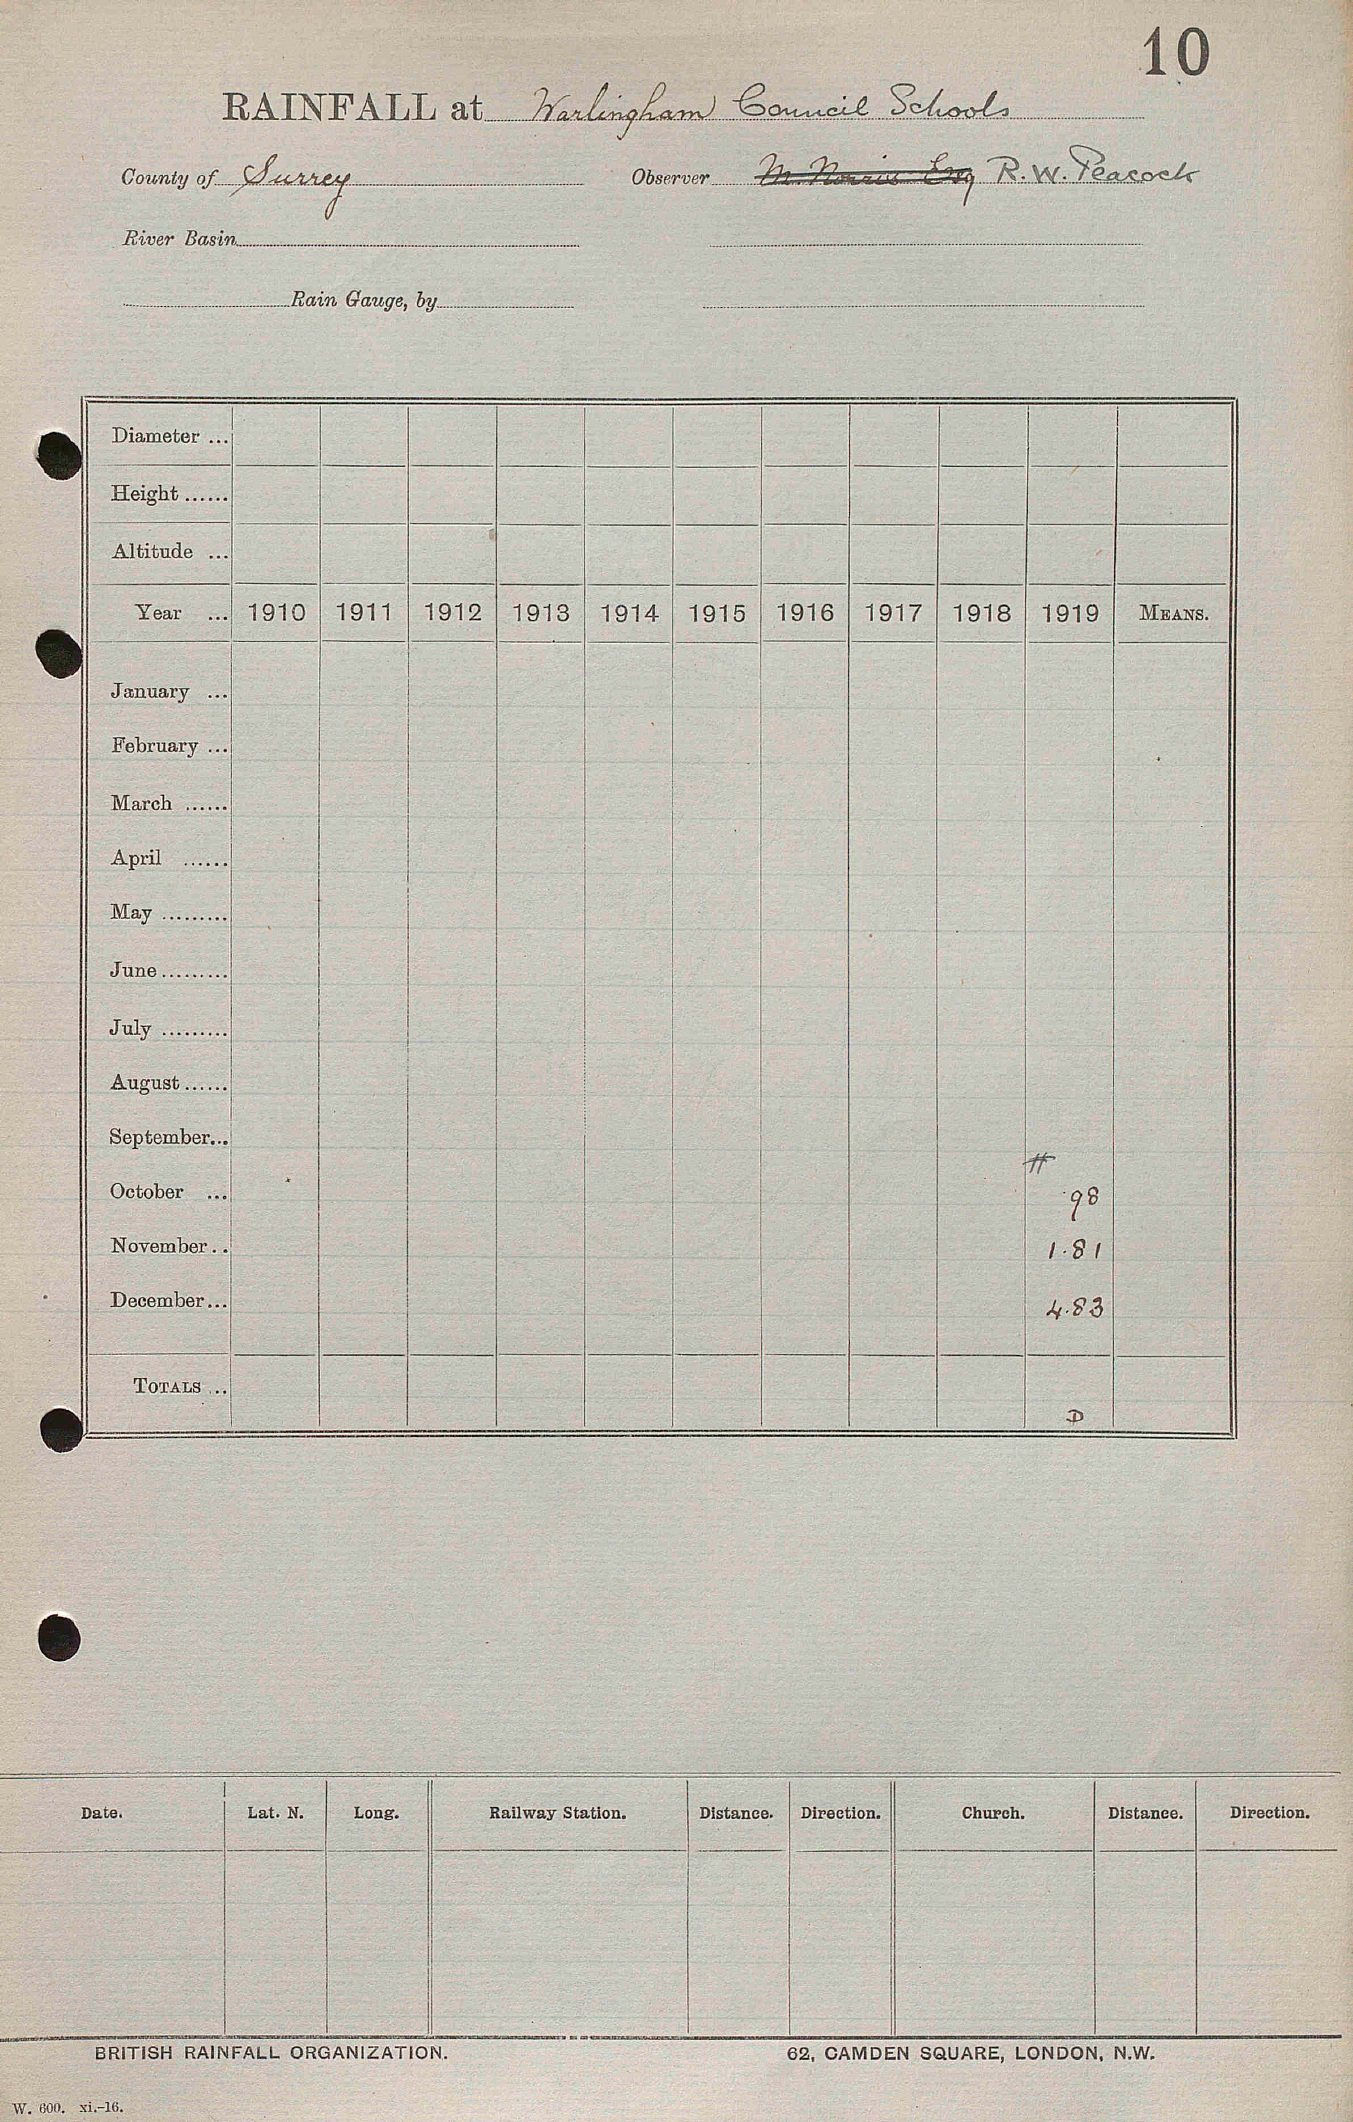 10
RAINFALL at Warlingham Council Schools
County of Surrey Observer M. Norris Esq R. W. Peacock
River Basin
Rain Gauge, by
Diameter ...
Height ......
Altitude ...
Year ... 1910 1911 1912 1913 1914 1915 1916 1917 1918 1919 MEANS.
January ...
February ...
March ......
April ......
May .........
June .........
July .........
August ......
September...
#
October ... ·98
November.. 1·81
December... 4·83
TOTALS ...
D
Date. Lat. N. Long. Railway Station. Distance. Direction. Church. Distance. Direction.
BRITISH RAINFALL ORGANIZATION. 62, CAMDEN SQUARE, LONDON, N.W.
W. 600. xi.-16.